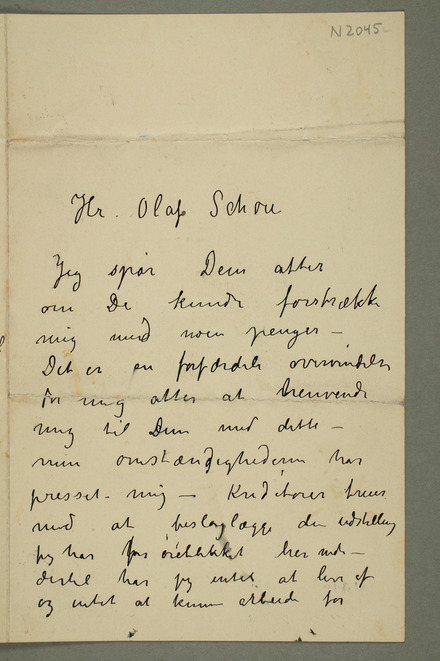 N 2045-
Hr. Olaf Schou
Jeg spør Dem atter
om De kunde forstrække
mig med noen penger –
Det er en forfærdelig overvindelse
for mig atter at henvende
mig til Dem med dette –
min omstændighederne har
presset mig – Kreditorer truer
med at beslaglægge den udstilling
jeg har for øieblikket her nede –
dertil har jeg intet at leve af
og intet at kunne arbeide for